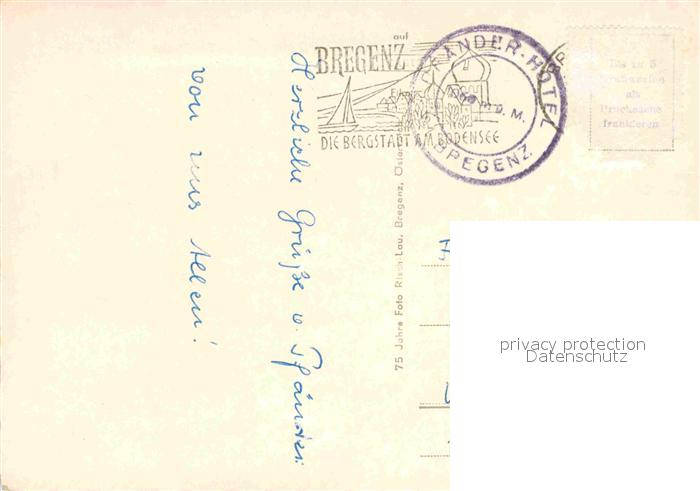 auf
BREGENZ
DIE BERGSTADT AM BODENSEE
PFÄNDER-HOTEL
M.
BREGENZ
Bis zu 5
als
Drucksache
frankieren
Herzliche Grüße v. Pfänder.
von uns Allen!
75 Jahre Foto Risch-Lau, Bregenz,
privacy protection
Datenschutz